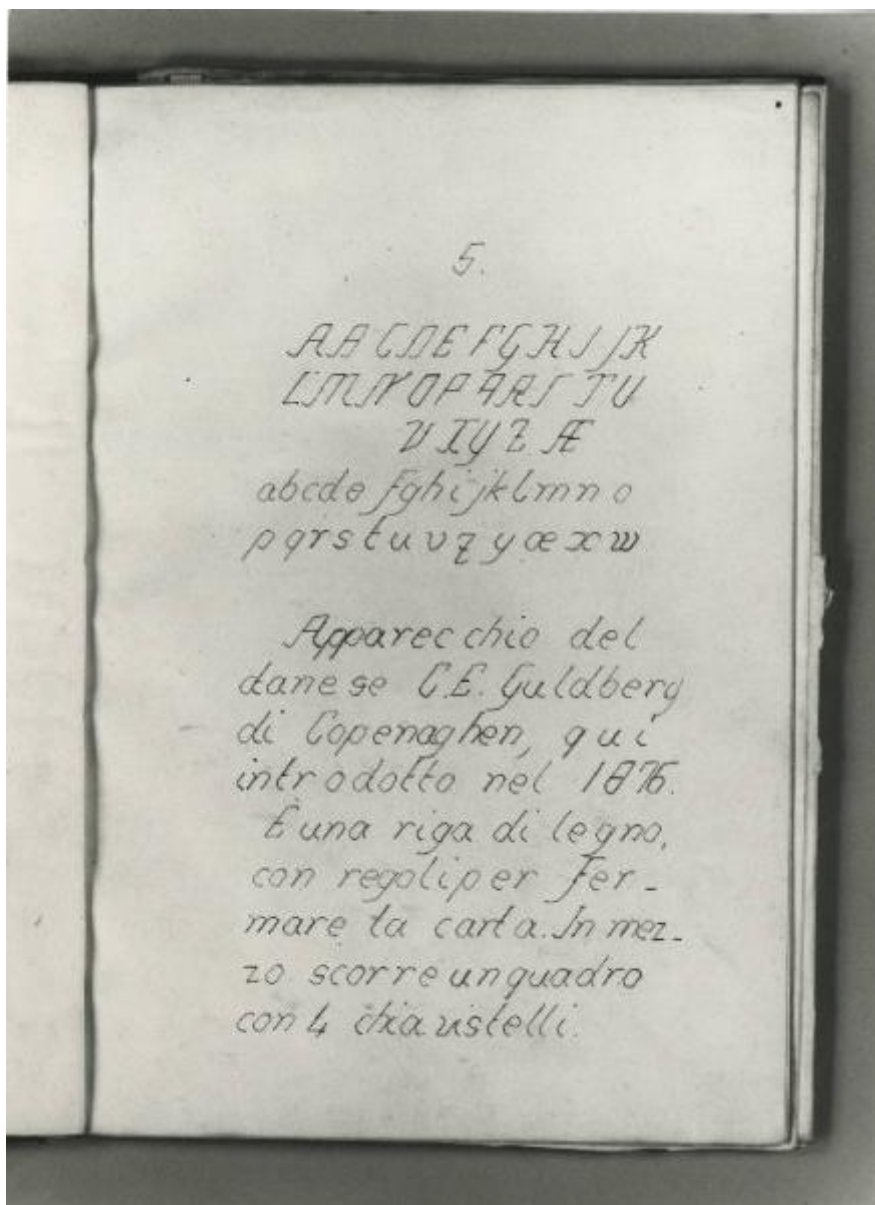 5.
A B C D E F G H I J K
L M N O P Q R S T U
V X Y Z Æ
a b c d e f g h i j k l m n o
p q r s t u v z y æ x w
Apparecchio del
danese C.E. Guldberg
di Copenaghen, qui
introdotto nel 1876.
È una riga di legno,
con regoli per fer-
mare la carta. In mez-
zo scorre un quadro
con 4 chiavistelli.